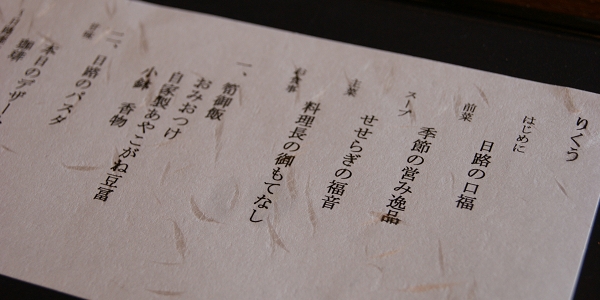 りくう
はじめに
日路の口福
前菜
季節の営み逸品
スープ
せせらぎの福音
主菜
料理長の御もてなし
お食事
一、筍御飯
おみおつけ
自家製あやこがね豆富
小鉢 香物
二、日路のパスタ
本日のデザート
珈琲